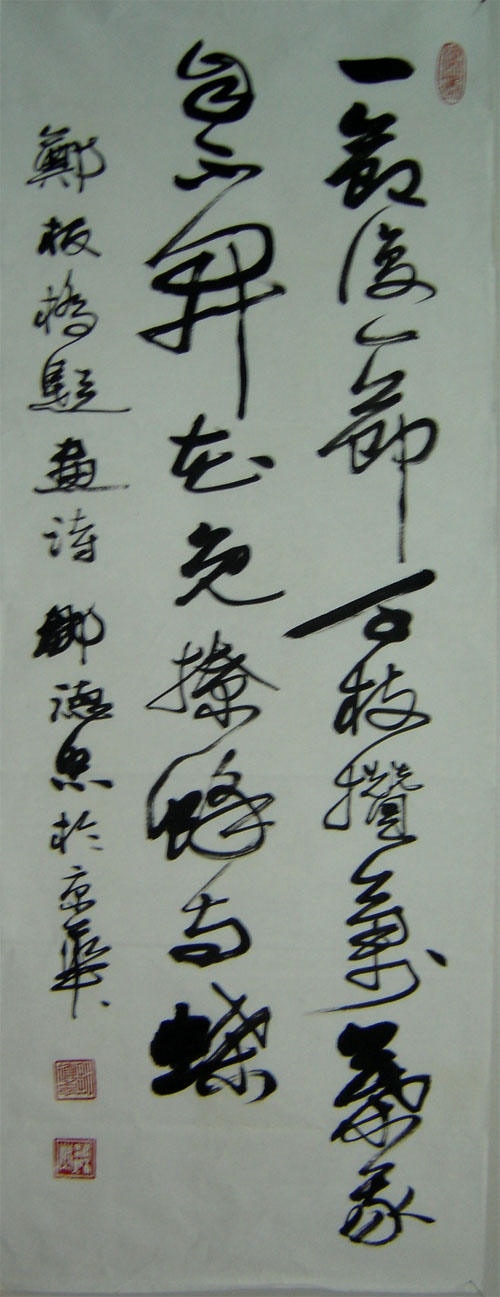 一節復一節千枝攢萬葉我
自不開花免撩蜂与蝶
鄭板橋題畫詩 鄧德忠於京華